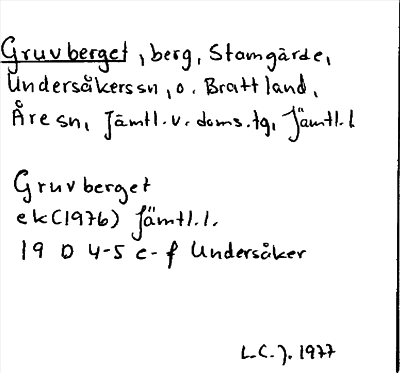 Gruvberget, berg, Stamgärde,
Undersåkers sn, o. Brattland,
Åre sn, Jämtl. v. doms. tg, Jämtl. l
Gruvberget
ek (1976) Jämtl. l.
19 D 4-5 c-f Undersåker
L.C.J. 1977